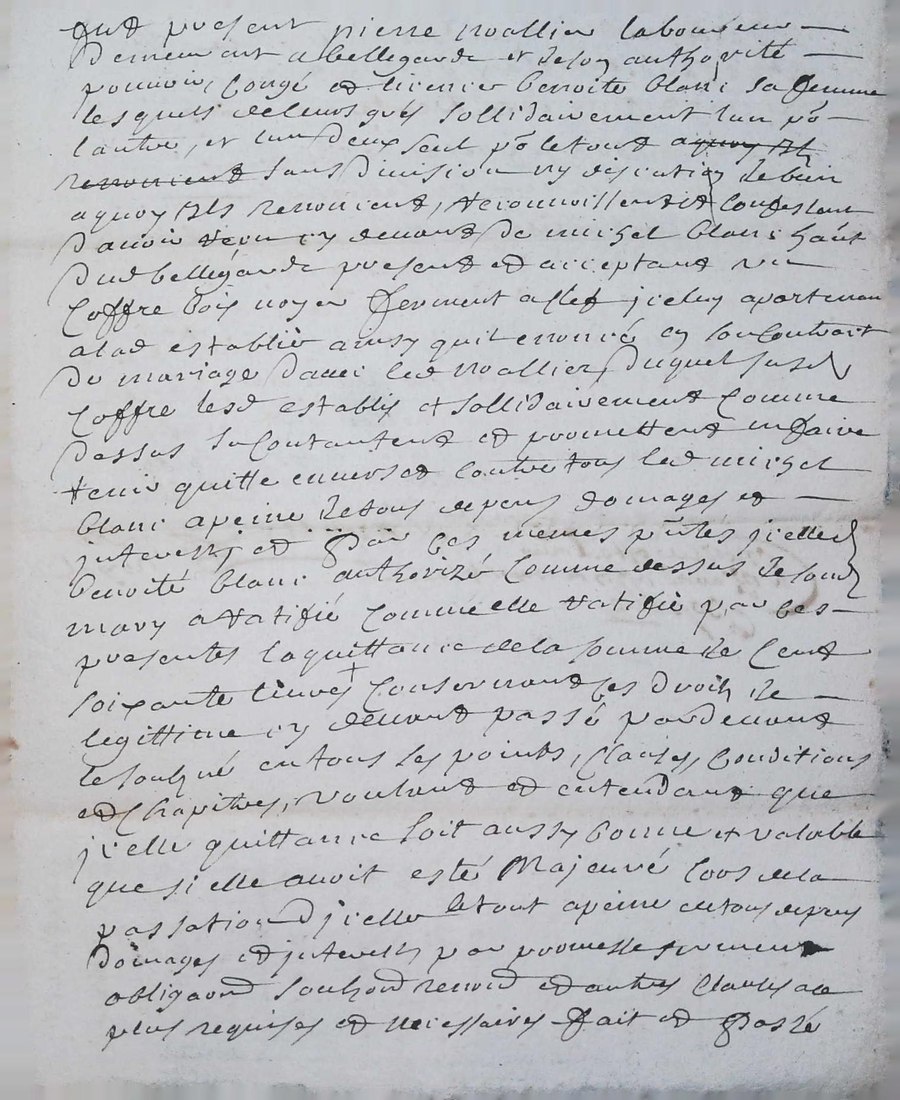 Fut present pierre noallier laboureur
Demeurant a bellegarde et de son authorité
pouvoir, Congé et licence benoite blanc sa femme
lesquels de leurs grés sollidairement l'un po
lautre, et lun deux seul po le tout a quoy Ils
renoncent sans Division ny discution de bien
a quoy Ils renoncent, reconnoissent et confessent
Davoir reçu cy devant de michel blanc
Dud bellegarde present et acceptant un
Coffre bois noyer fermant a clef jceluy apartenan
a lad establie ainsy quil enoncé en son Contrait
De mariage Davec led noallier, Duquel susd
Coffre lesd establis et sollidairement Comme
Dessus se Contantent et promettent en faire
tenir quitte envers et contre tous led michel
blanc a peine de tous depens domages et
jnterests, et Par ces memes pntes jcelle
benoite blanc authorizé Comme dessus de sond
mary a ratifié Comme elle ratifie par ces
presentes la quittance de la somme de Cent
soixante livres Consernant ses Droits de
legittime cy devant passé pardevant
le soubné en tous ses points, Clauses, Conditions
et Chapitres, voulant et entendant que
jcelle quittance soit aussy bonne et valable
que si elle avoit esté Majeure lors de la
passation D'jcelle le tout a peine de tous depens
Domages et jnterests par promesse serment
obligaond soubzond renond et autres Clauses a ce
plus requises et necessaires fait et Passé